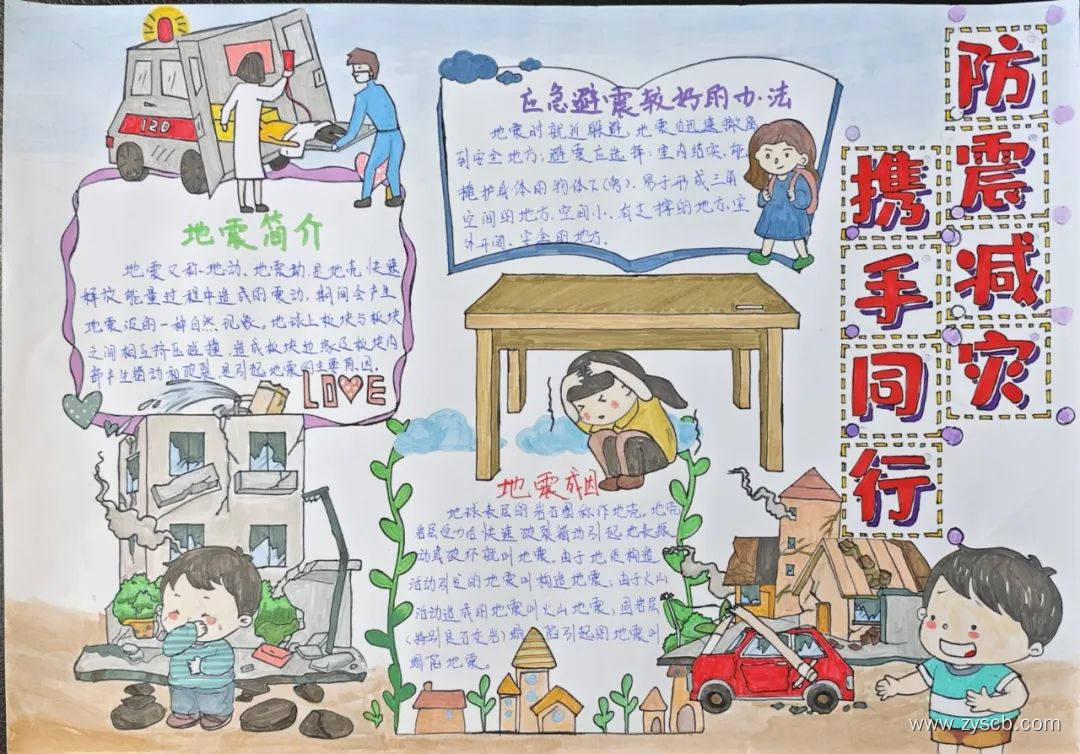 防震减灾
携手同行
120
地震简介
地震又称地动、地震动,是地壳快速
释放能量过程中造成的震动,期间会产生
地震波的一种自然现象。地球上板块与板块
之间相互挤压碰撞,造成板块边缘及板块内
部产生错动和破裂,是引起地震的主要原因。
LOVE
应急避震较好的办法
地震时就近躲避,地震后迅速撤离
到安全地方;避震应选择:室内结实、能
掩护身体的物体下(旁)、易于形成三角
空间的地方,空间小、有支撑的地方,室
外开阔、安全的地方。
地震成因
地球表层的岩石圈称作地壳。地壳
岩层受力后快速破裂错动引起地表振
动或破坏就叫地震。由于地质构造
活动引发的地震叫构造地震;由于火山
活动造成的地震叫火山地震;固岩层
(特别是石灰岩)塌陷引起的地震叫
塌陷地震。
www.zyscb.com